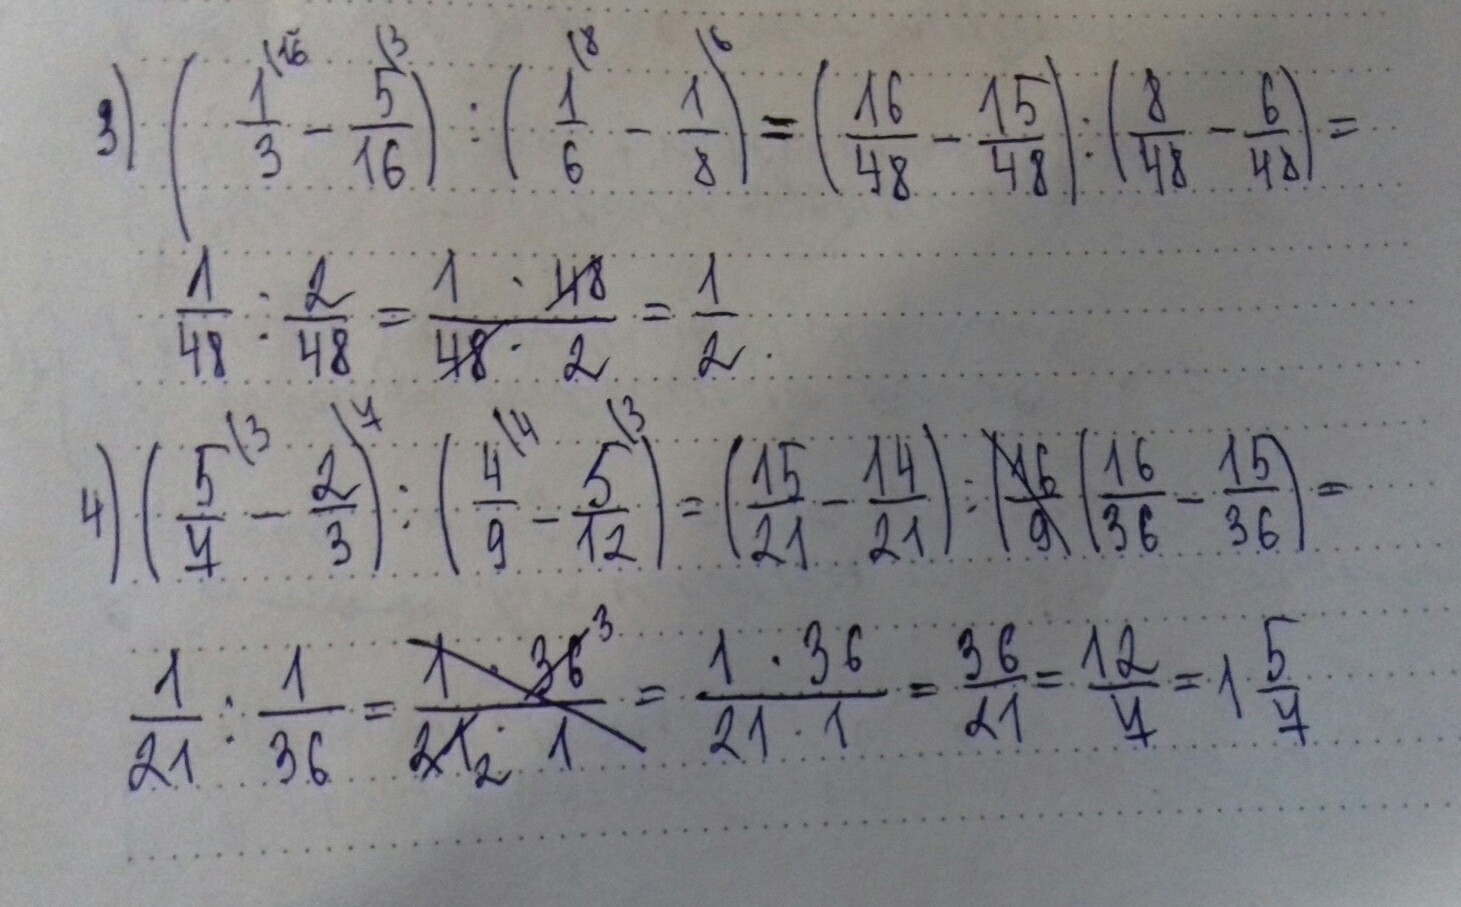 3) (1/3 \16 − 5/16 \3) : (1/6 \8 − 1/8 \6) = (16/48 − 15/48) : (8/48 − 6/48) =
1/48 : 2/48 = (1 · 48)/(48 · 2) = 1/2.
4) (5/7 \3 − 2/3 \7) : (4/9 \4 − 5/12 \3) = (15/21 − 14/21) : (16/9 (16/36 − 15/36) =
1/21 : 1/36 = (1 · 36 3)/(21 2 · 1) = (1 · 36)/(21 · 1) = 36/21 = 12/7 = 1 5/7